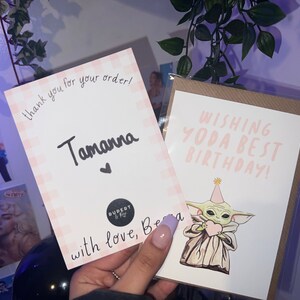 thank you for your order!
Tamanna
with love, Be
WISHING
YODA BEST
BIRTHDAY!